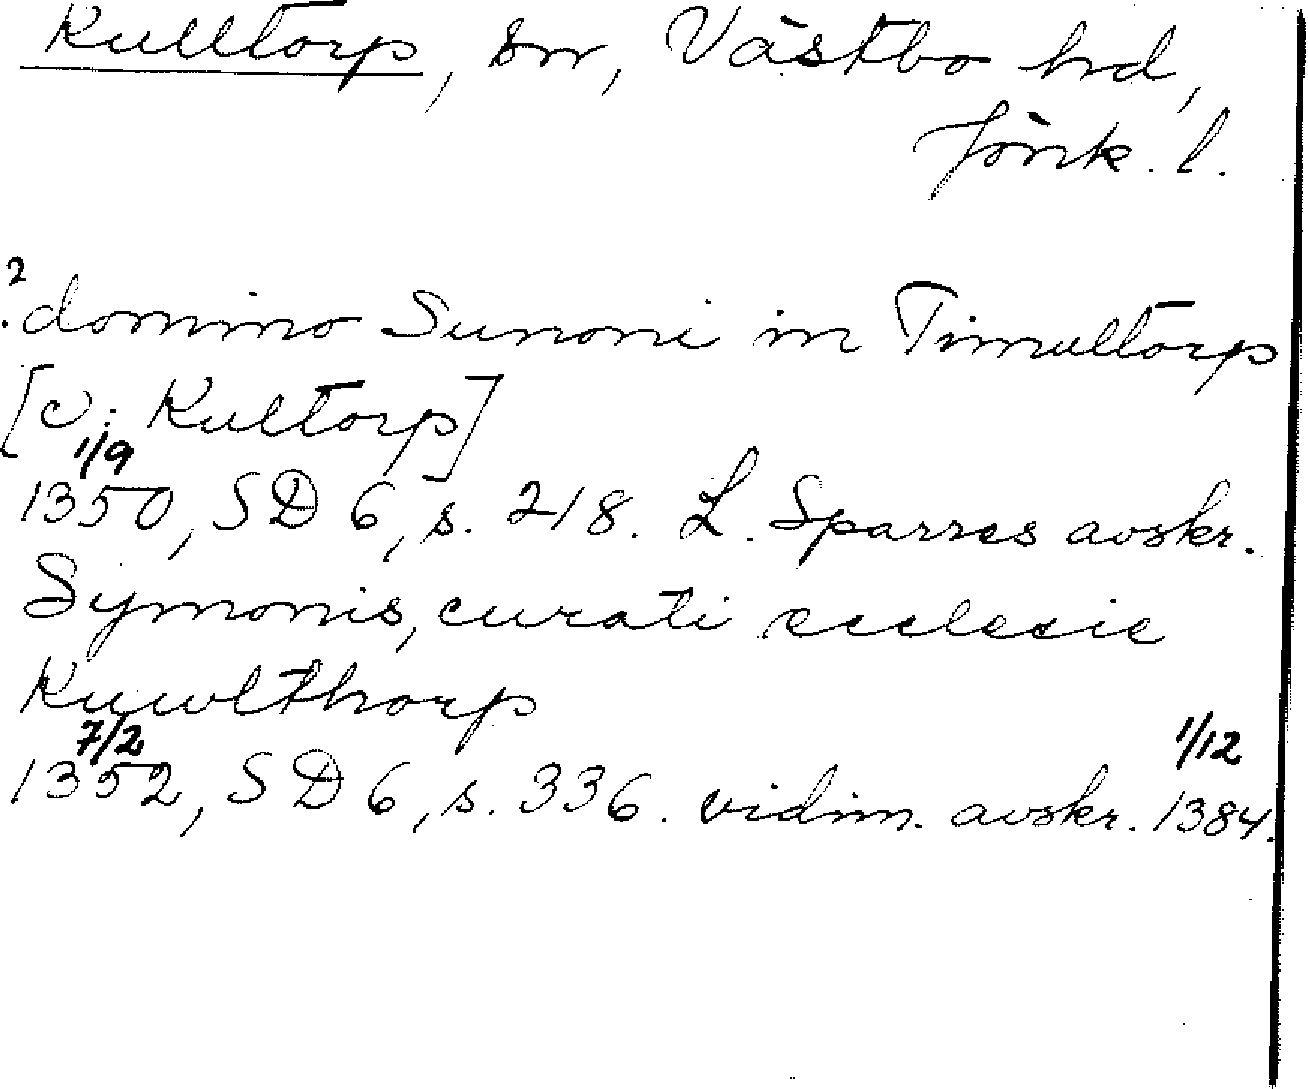 Kulltorp, sn, Västbo hd,
Jönk. l.
2
. domino Sunoni in Timultorp
[ɔ: Kultorp]
1/9
1350, SD 6, s. 218. L. Sparres avskr.
Symonis, curati ecclesie
Kuwlthorp
7/2 1/12
1352, SD 6, s. 336. vidim. avskr. 1384.